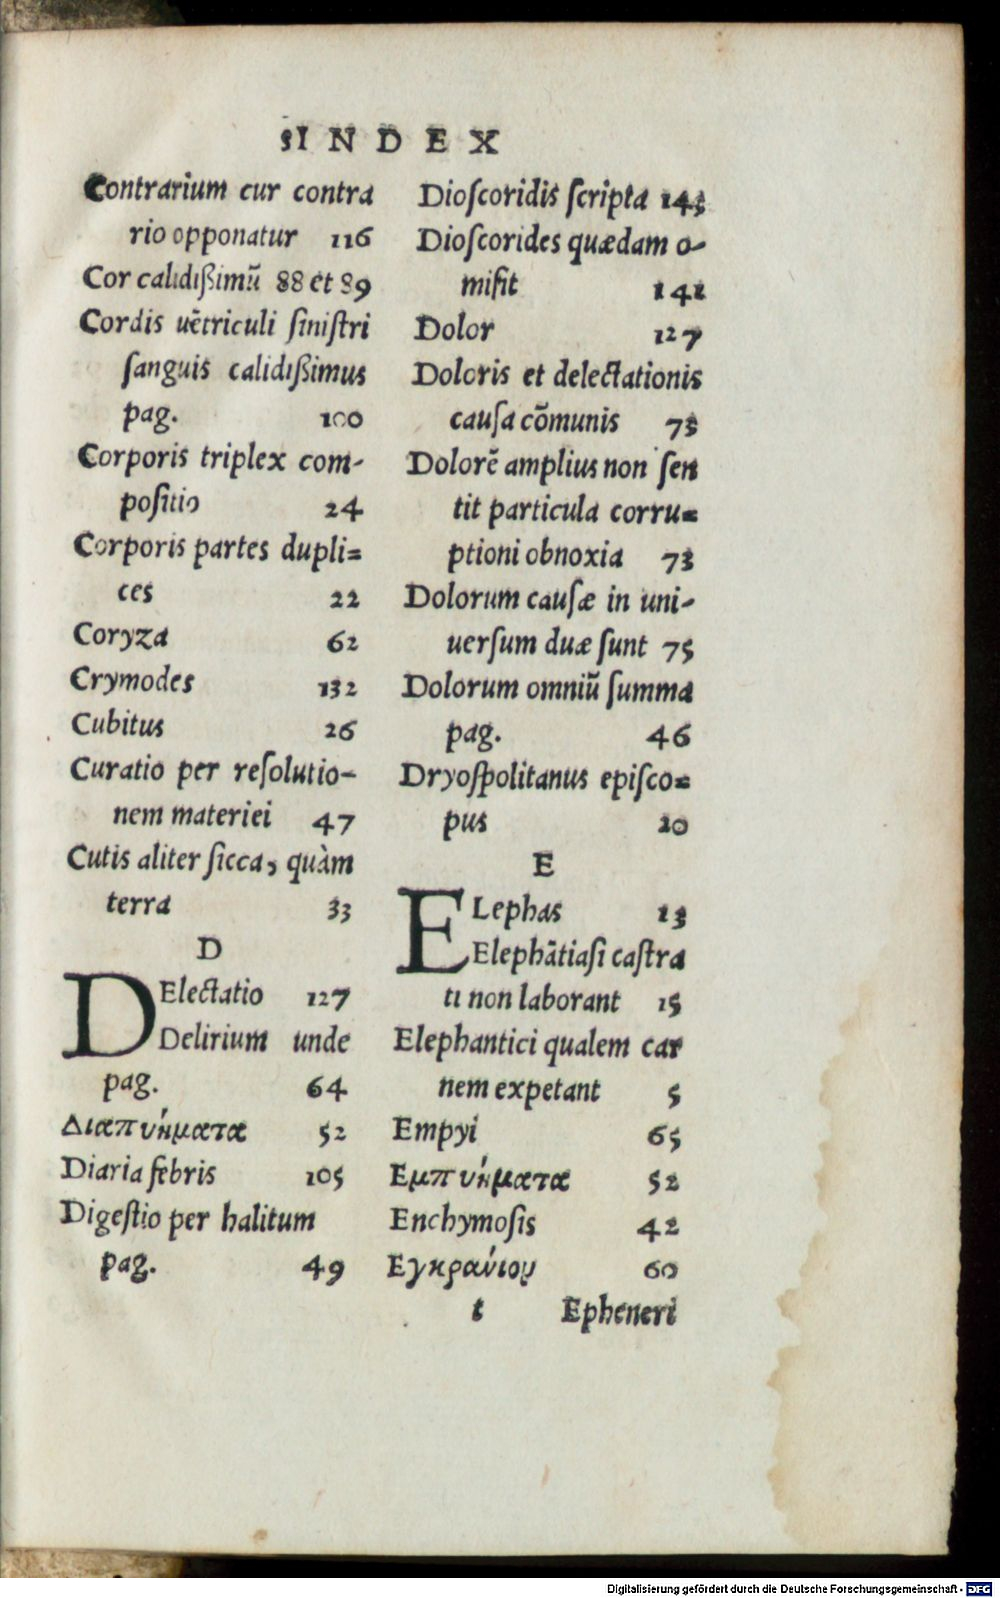 INDEX
Contrarium cur contra
rio opponatur 116
Cor calidißimū 88 et 89
Cordis uētriculi ſiniſtri
ſanguis calidißimus
pag. 100
Corporis triplex com-
poſitio 24
Corporis partes dupli=
ces 22
Coryza 62
Crymodes 132
Cubitus 26
Curatio per reſolutio-
nem materiei 47
Cutis aliter ſicca, quàm
terra 33
D
DElectatio 127
Delirium unde
pag. 64
Διαπυήματα 52
Diaria febris 105
Digeſtio per halitum
pag. 49
Dioſcoridis ſcripta 143
Dioſcorides quædam o-
miſit 141
Dolor 127
Doloris et delectationis
cauſa cōmunis 73
Dolorē amplius non ſen
tit particula corru=
ptioni obnoxia 73
Dolorum cauſæ in uni-
uerſum duæ ſunt 75
Dolorum omniū ſumma
pag. 46
Dryoſpolitanus epiſco=
pus 20
E
ELephas 13
Elephātiaſi caſtra
ti non laborant 15
Elephantici qualem car
nem expetant 5
Empyi 65
Εμπυήματα 52
Enchymoſis 42
Εγκρανίου 60
t Epheneri
Digitalisierung gefördert durch die Deutsche Forschungsgemeinschaft - DFG